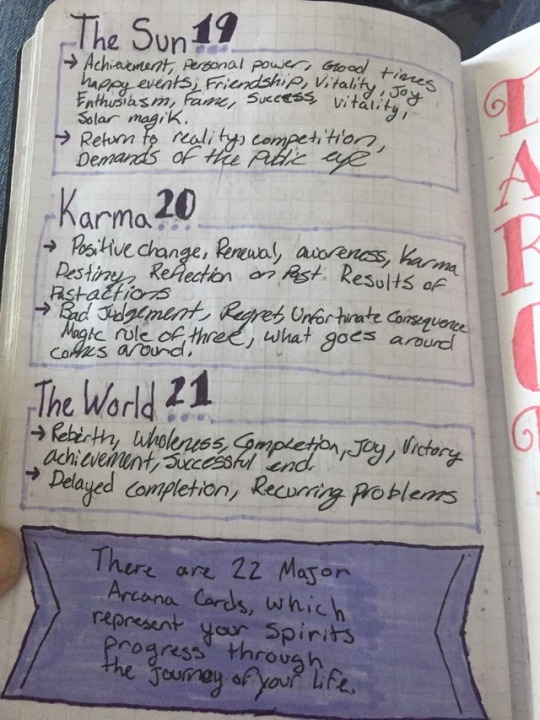 The Sun 19
→ Achievement, Personal power, Good times
happy events, Friendship, Vitality, Joy
Enthusiasm, Fame, Success, Vitality,
Solar magik.
→ Return to reality, competition,
Demands of the Public eye
Karma 20
→ Positive change, Renewal, awareness, Karma
Destiny, Reflection on Past. Results of
Past actions
→ Bad Judgement, Regret, Unfortunate Consequence
Magic rule of three, what goes around
comes around.
The World 21
→ Rebirth, Wholeness, Completion, Joy, Victory
achievement, Successful end.
→ Delayed completion, Recurring problems
There are 22 Major
Arcana Cards, which
represent your Spirits
progress through
the Journey of your life.
T
A
R
O
T